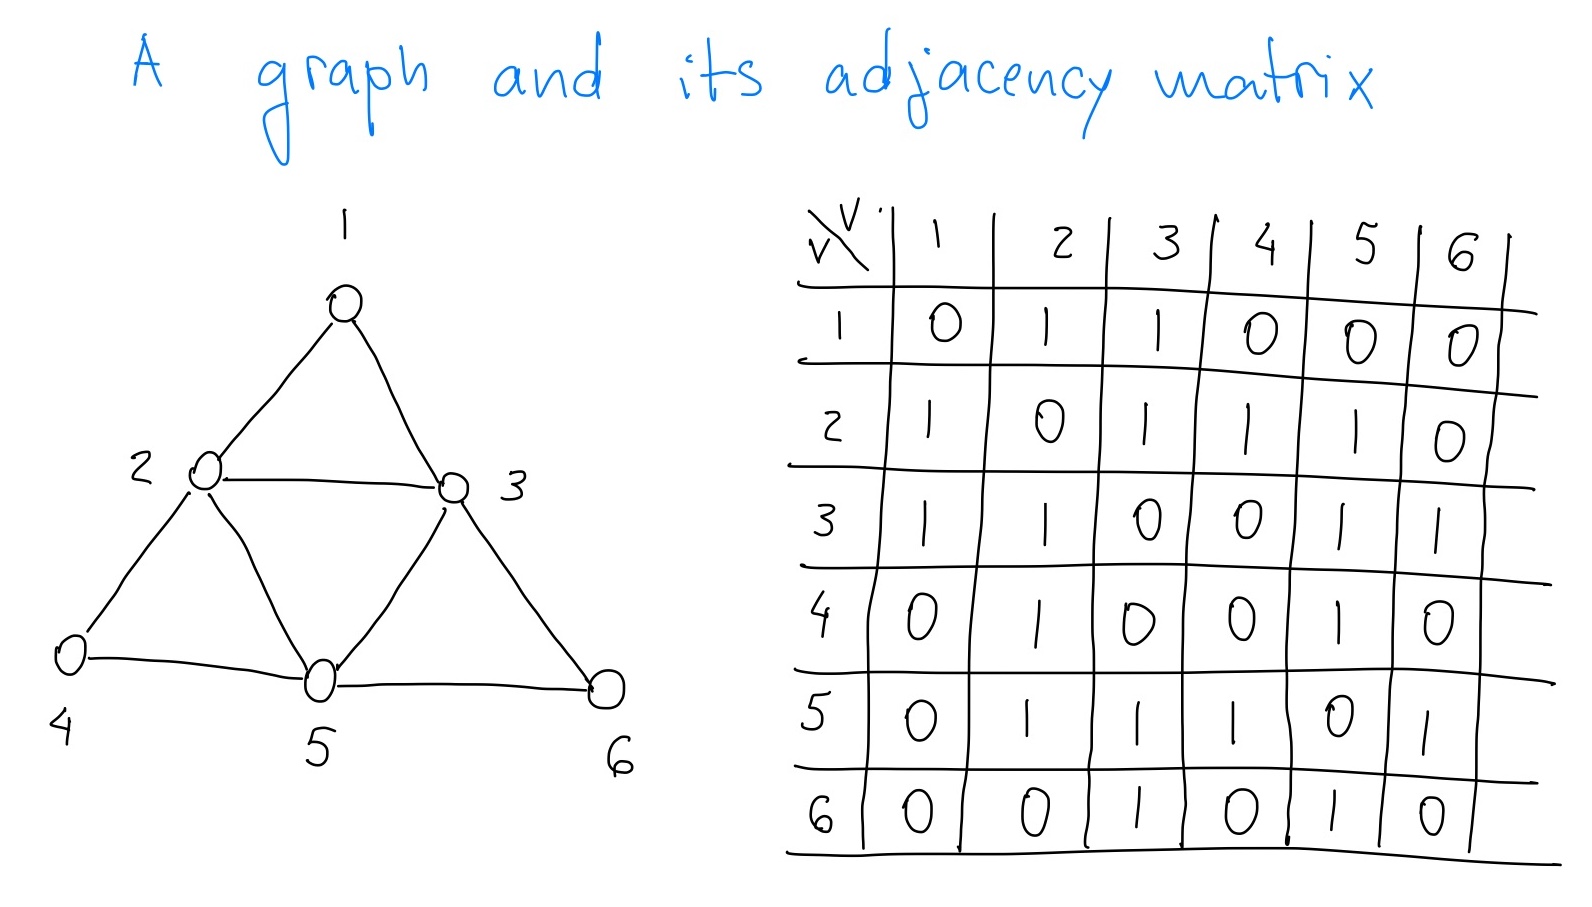 A graph and its adjacency matrix
1
2 3
4 5 6
V V 1 2 3 4 5 6
1 0 1 1 0 0 0
2 1 0 1 1 1 0
3 1 1 0 0 1 1
4 0 1 0 0 1 0
5 0 1 1 1 0 1
6 0 0 1 0 1 0